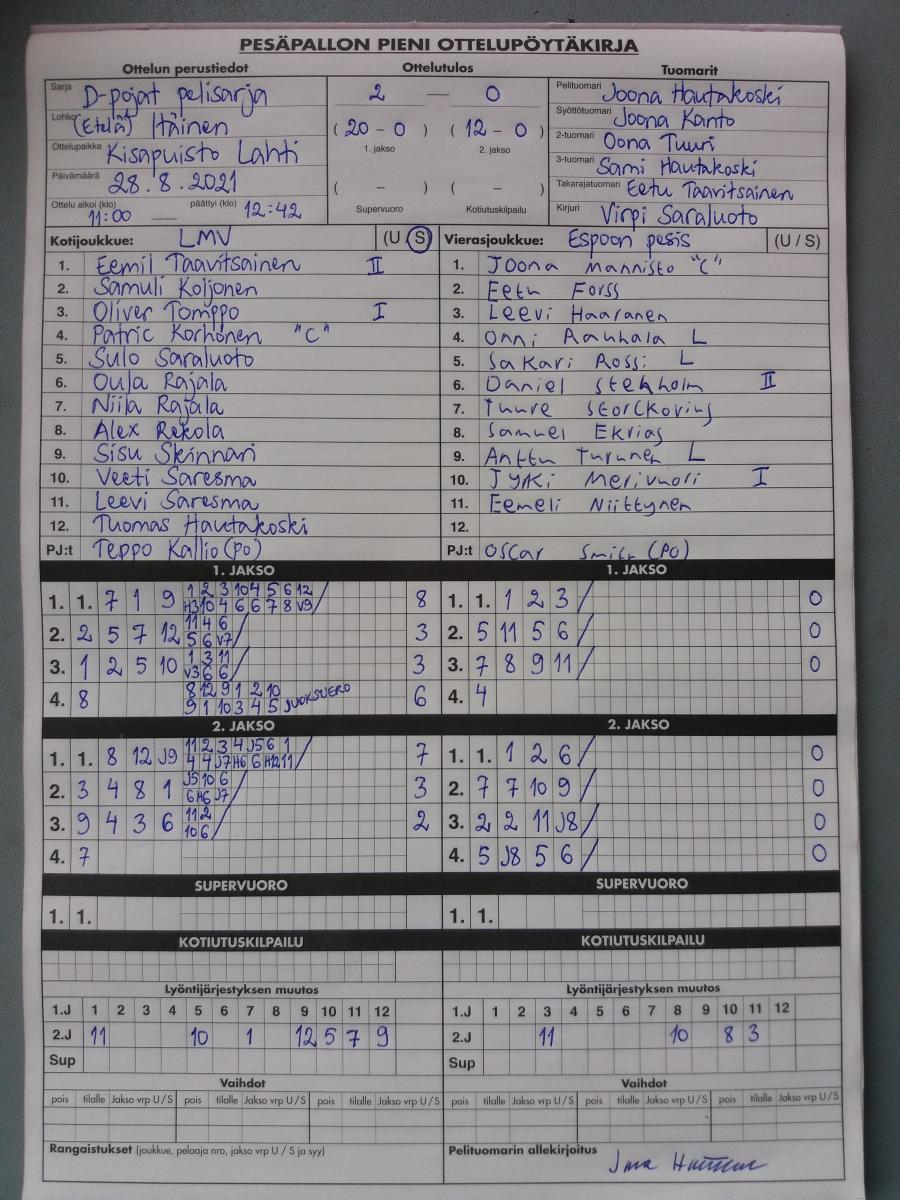 PESÄPALLON PIENI OTTELUPÖYTÄKIRJA
Ottelun perustiedot Ottelutulos Tuomarit
Sarja D-pojat pelisarja
Lohko (Etelä) Itäinen
Ottelupaikka Kisapuisto Lahti
Päivämäärä 28.8.2021
Ottelu alkoi (klo) 11:00 — päättyi (klo) 12:42
2 — 0
(20 – 0) (12 – 0)
1. jakso 2. jakso
( – ) ( – )
Supervuoro Kotiutuskilpailu
Pelituomari Joona Hautakoski
Syöttötuomari Joona Kanto
2-tuomari Oona Tuuri
3-tuomari Sami Hautakoski
Takarajatuomari Eetu Taavitsainen
Kirjuri Virpi Saraluoto
Kotijoukkue: LMV (U/S)
1. Eemil Taavitsainen II
2. Samuli Koljonen
3. Oliver Tomppo I
4. Patric Korhonen "C"
5. Sulo Saraluoto
6. Oula Rajala
7. Niila Rajala
8. Alex Rekola
9. Sisu Skinnari
10. Veeti Saresma
11. Leevi Saresma
12. Tuomas Hautakoski
PJ:t Teppo Kallio (PO)
Vierasjoukkue: Espoon pesis (U/S)
1. Joona Mannisto "C"
2. Eetu Forss
3. Leevi Haaranen
4. Onni Rauhala L
5. Sakari Rossi L
6. Daniel Stenholm II
7. Tuure Storckovius
8. Samuel Ekrias
9. Anttu Turunen L
10. Jyki Merivuori I
11. Eemeli Niittynen
12.
PJ:t Oscar (PO)
1. JAKSO
1. 1. 7 1 9 1 2 3 10 4 5 6 12 / 8
H3 10 4 6 6 7 8 V9
2. 2 5 7 12 11 4 6 / 3
5 6 V7
3. 1 2 5 10 1 3 11 / 3
V3 6 6
4. 8 8 12 9 1 2 10 6
9 1 10 3 4 5 JUOKSUERO
1. JAKSO
1. 1. 1 2 3 / 0
2. 5 11 5 6 / 0
3. 7 8 9 11 / 0
4. 4
2. JAKSO
1. 1. 8 12 J9 11 2 3 4 J5 6 1 / 7
4 4 J7 H6 6 H12 11
2. 3 4 8 1 J5 10 6 / 3
6 H6 J7
3. 9 4 3 6 11 2 / 2
10 6
4. 7
2. JAKSO
1. 1. 1 2 6 / 0
2. 7 7 10 9 / 0
3. 2 2 11 J8 / 0
4. 5 J8 5 6 / 0
SUPERVUORO SUPERVUORO
1. 1. 1. 1.
KOTIUTUSKILPAILU KOTIUTUSKILPAILU
Lyöntijärjestyksen muutos
1.J 1 2 3 4 5 6 7 8 9 10 11 12
2.J 11 10 1 12 5 7 9
Sup
Lyöntijärjestyksen muutos
1.J 1 2 3 4 5 6 7 8 9 10 11 12
2.J 11 10 8 3
Sup
Vaihdot Vaihdot
pois tilalle Jakso vrp U/S pois tilalle Jakso vrp U/S pois tilalle Jakso vrp U/S
pois tilalle Jakso vrp U/S pois tilalle Jakso vrp U/S pois tilalle Jakso vrp U/S
Rangaistukset (joukkue, pelaaja nro, jakso vrp U / S ja syy)
Pelituomarin allekirjoitus